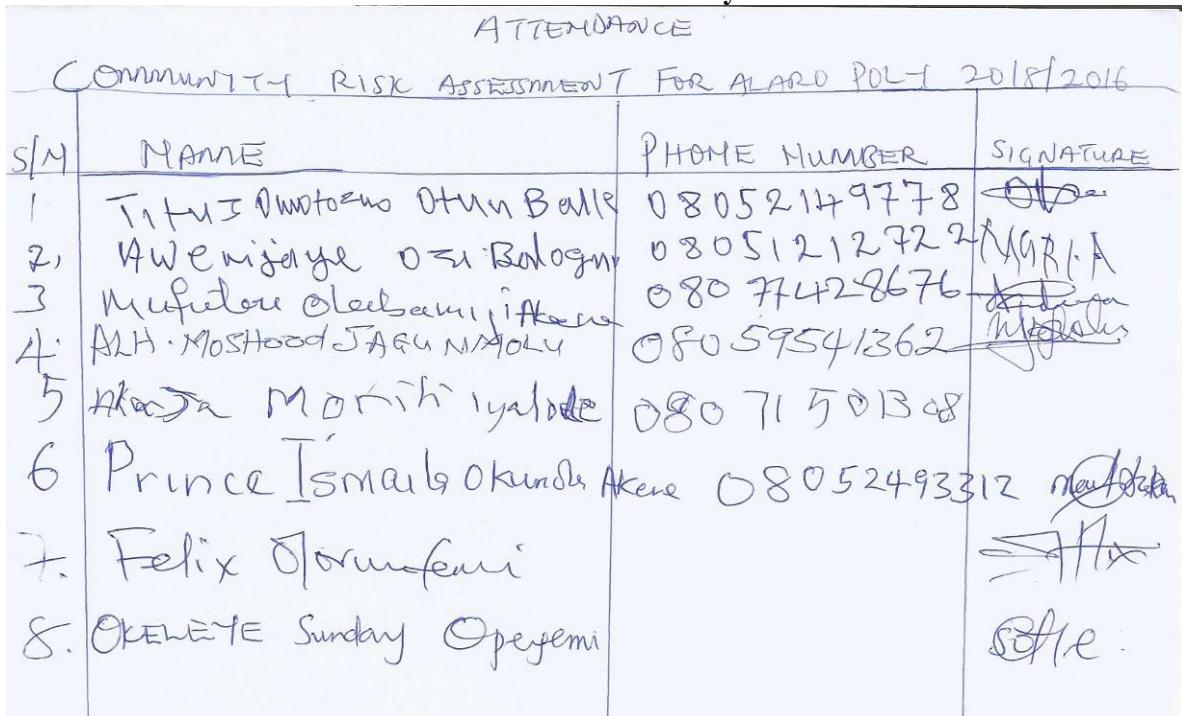 ATTENDANCE
COMMUNITY RISK ASSESSMENT FOR ALARO POLY 2018/2016
S/N NAME PHONE NUMBER SIGNATURE
1 Titus Omotoso Otun Balle 08052149778
2, Awenijaye Osi Balogun 08051212722
3 Mufutau Olabamiji Akere 08077428676
4. ALH. MOSHOOD JAGUNMOLU 08059541362
5 Moriti iyalode 08071501308
6 Prince Ismaila Okunola Akere 08052493312
7. Felix Olorunfemi
8. OKELEYE Sunday Opeyemi